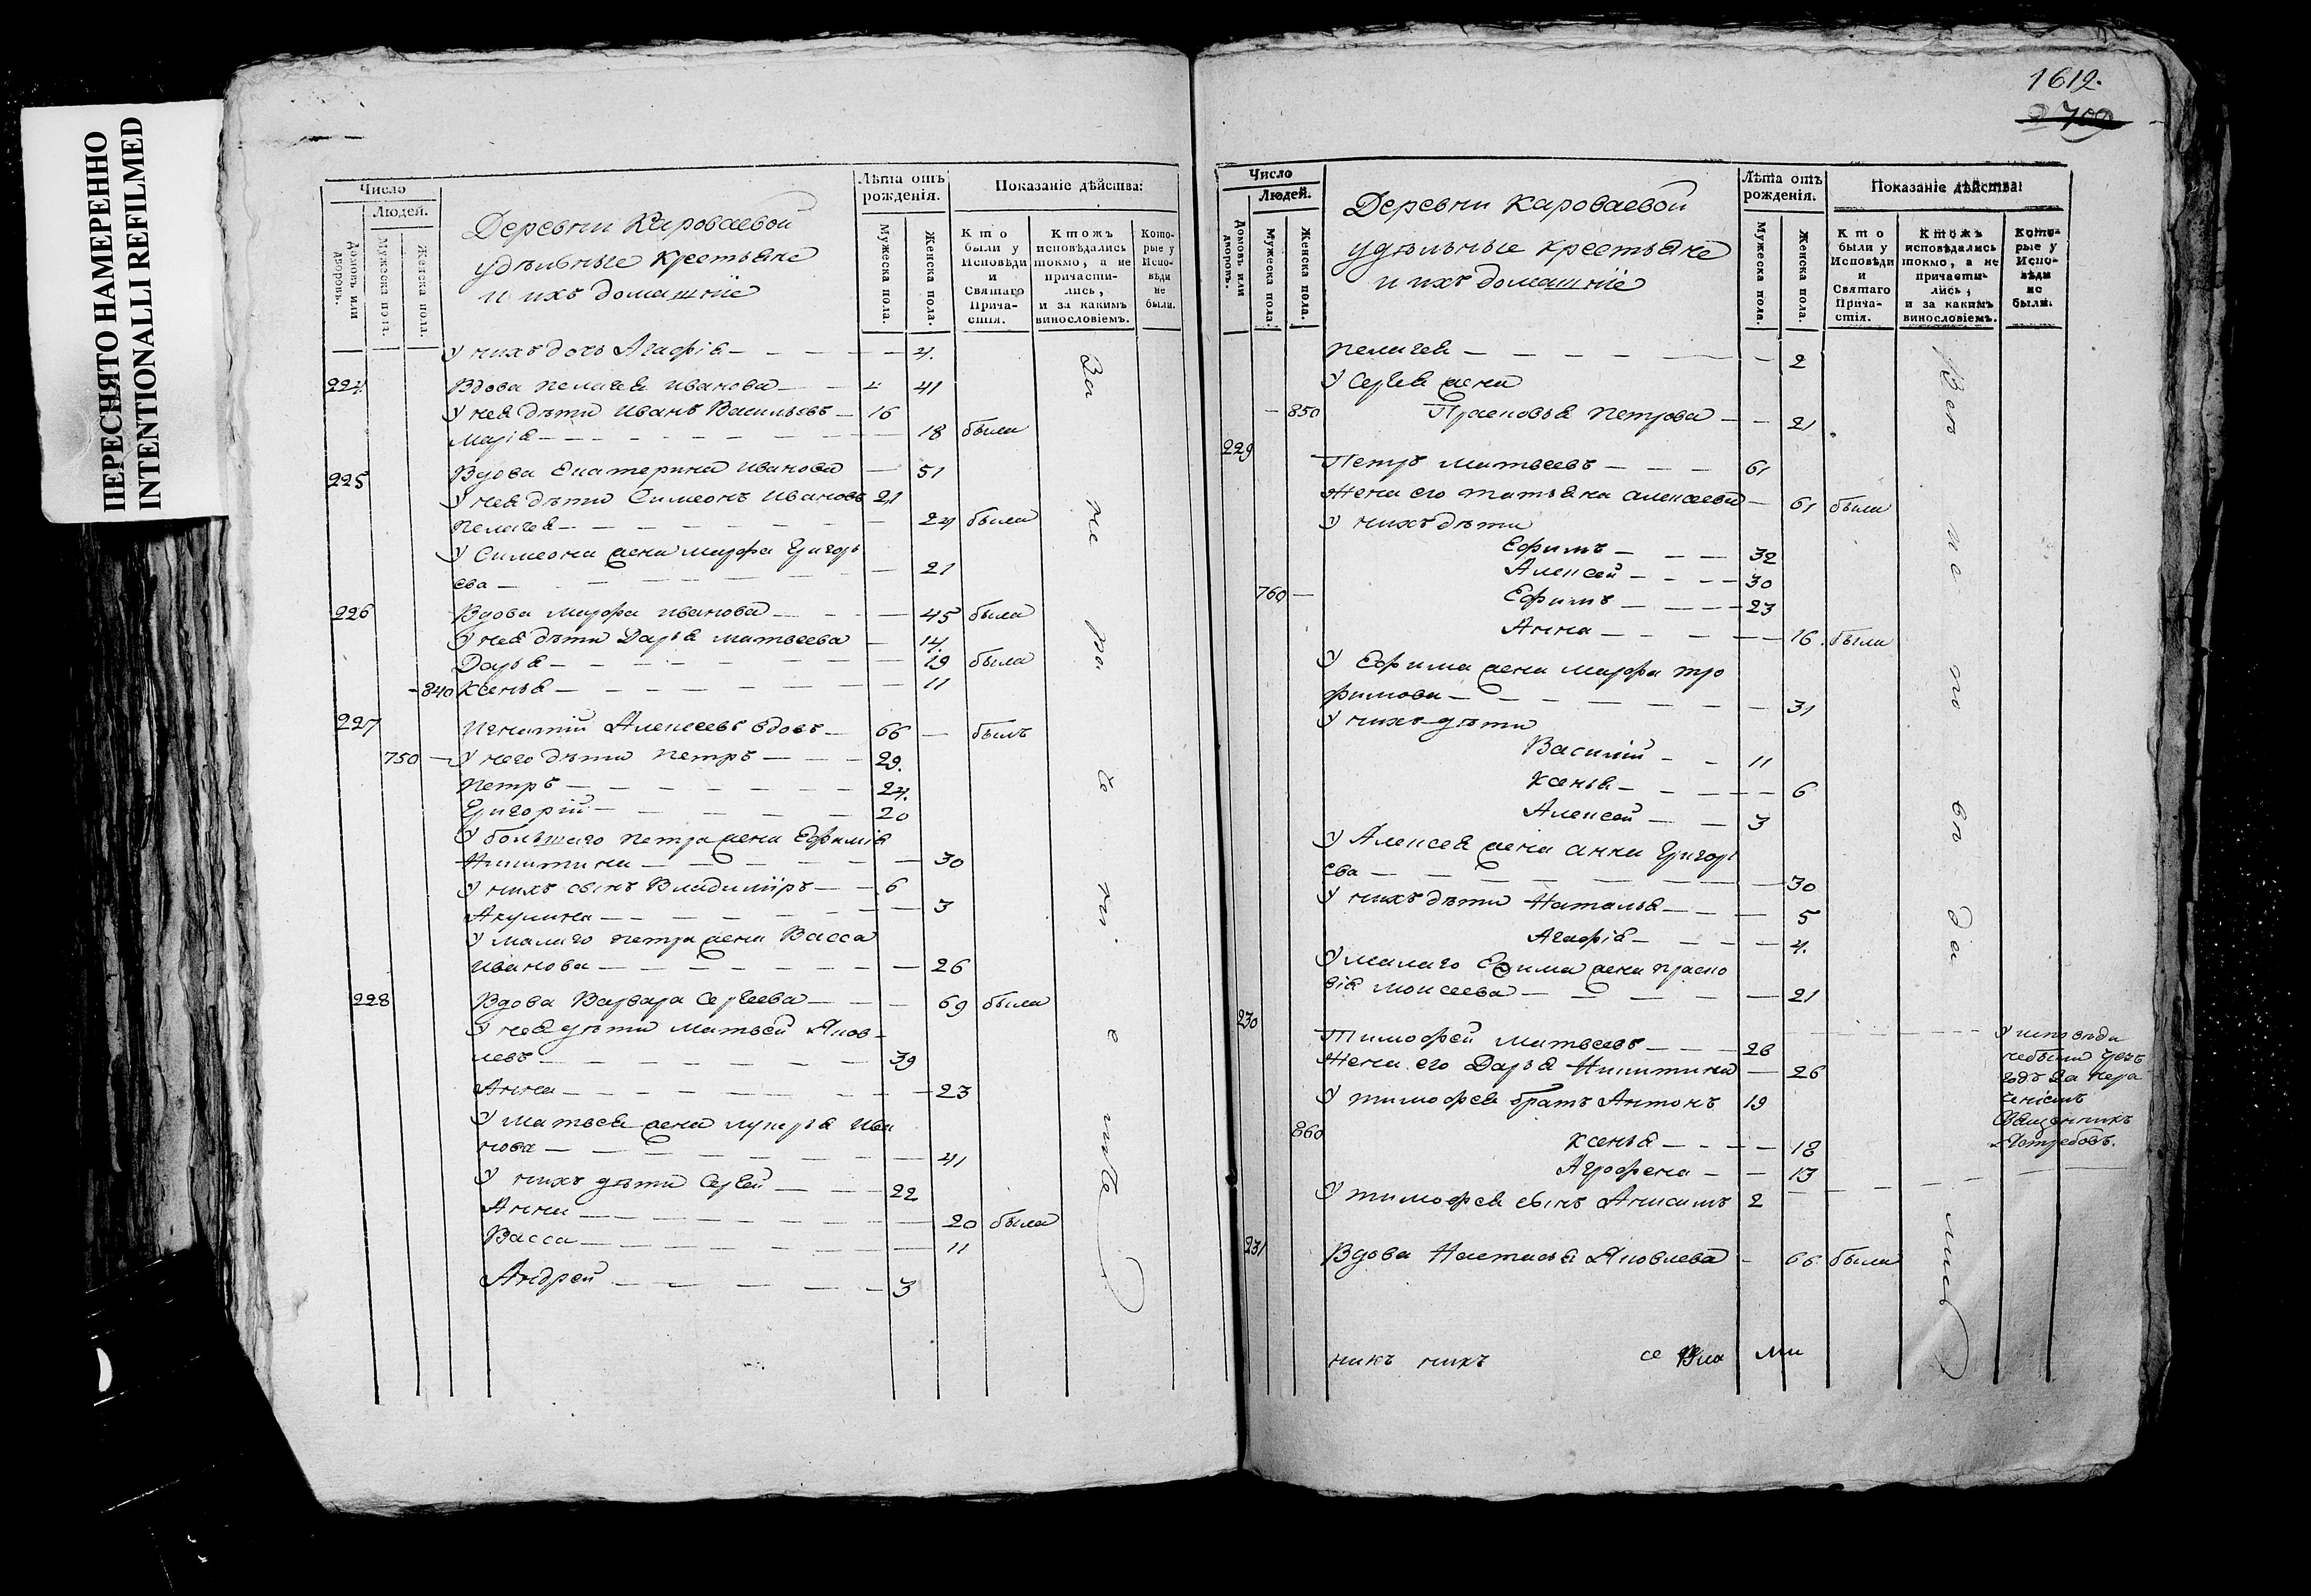 ПЕРЕСНЯТО НАМЕРЕННО
INTENTIONALLI REFILMED
Число
Людей.
Домовъ или дворовъ.
Мужеска пола.
Женска пола.
Деревни Кароваевой
удѣльные крестьяне
и ихъ домашнїе
Лѣта отъ рожденія.
Мужеска пола.
Женска пола.
Показаніе дѣйства:
Кто были у Исповѣди и Святаго Прича-стія.
Ктожъ исповѣдались токмо, а не причасти-лись, и за какимъ винословіемъ.
Кото-рые у Испо-вѣди не были.
У нихъ дочь Агафія — 4.
224 Вдова Пелагея Иванова — 41
У нея дѣти Иванъ Васильевъ — 16
Марія — 18 была
225 Вдова Екатерина Иванова — 51
У нея дѣти Симеонъ Ивановъ 21
Пелагея — 24 была
У Симеона жена Марфа Григорь
ева — 21
226 Вдова Марфа Иванова — 45 была
У нея дѣти Дарья Матвеева — 14.
Дарья — 19 была
840 Ксенья — 11
227 Игнатій Алексеевъ вдовъ — 66 — былъ
750 — У него дѣти Петръ — 29.
Петръ — 24.
Григорій — 20
У большаго Петра жена Ефимія
Никитина — 30
У нихъ сынъ Владимiръ — 6
Акулина — 3
У малаго Петра жена Васса
Иванова — 26
228 Вдова Варвара Сергеева — 69 была
У нея дѣти Матвей Яков-
левъ — 39
Анна — 23
У Матвея жена Лукерья Ива
нова — 41
У нихъ дѣти Сергей — 22
Анна — 20 была
Васса — 11
Андрей — 3
За не ра. че ні. е мъ
1612.
2709
Число
Людей.
Домовъ или дворовъ.
Мужеска пола.
Женска пола.
Деревни Кароваевой
удѣльные крестьяне
и ихъ домашнїе
Лѣта отъ рожденія.
Мужеска пола.
Женска пола.
Показаніе дѣйства:
Кто были у Исповѣди и Святаго Прича-стія.
Ктожъ исповѣдались токмо, а не причасти-лись, и за какимъ винословіемъ.
Кото-рые у Испо-вѣди не были.
Пелагея — 2
У Сергея жена
850 Прасковья Петрова — 21
229 Петръ Матвеевъ — 61
Жена его Татьяна Алексеева — 61 была
У нихъ дѣти
Ефимъ — 32
Алексей — 30
760 — Ефимъ — 23
Анна — 16 была
У Ефима жена Марфа Тро
фимова — 31
У нихъ дѣти
Василій — 11
Ксенья — 6
Алексей — 3
У Алексея жена Анна Григорь
ева — 30
У нихъ дѣти Наталья — 5
Агафія — 4.
У малаго Ефима жена Праско
вія Моисеева — 21
230 Тимофей Матвеевъ — 26
Жена его Дарья Никитина — 26
У Тимофея братъ Антонъ 19
860 Ксенья — 18
Агрофена — 13
У Тимофея сынъ Анисимъ 2
У исповѣди
небыли чрезъ
годъ за нера
ченіемъ
Священникъ
231 Вдова Настасья Яковлева — 66 была
никъ нихъ се ми